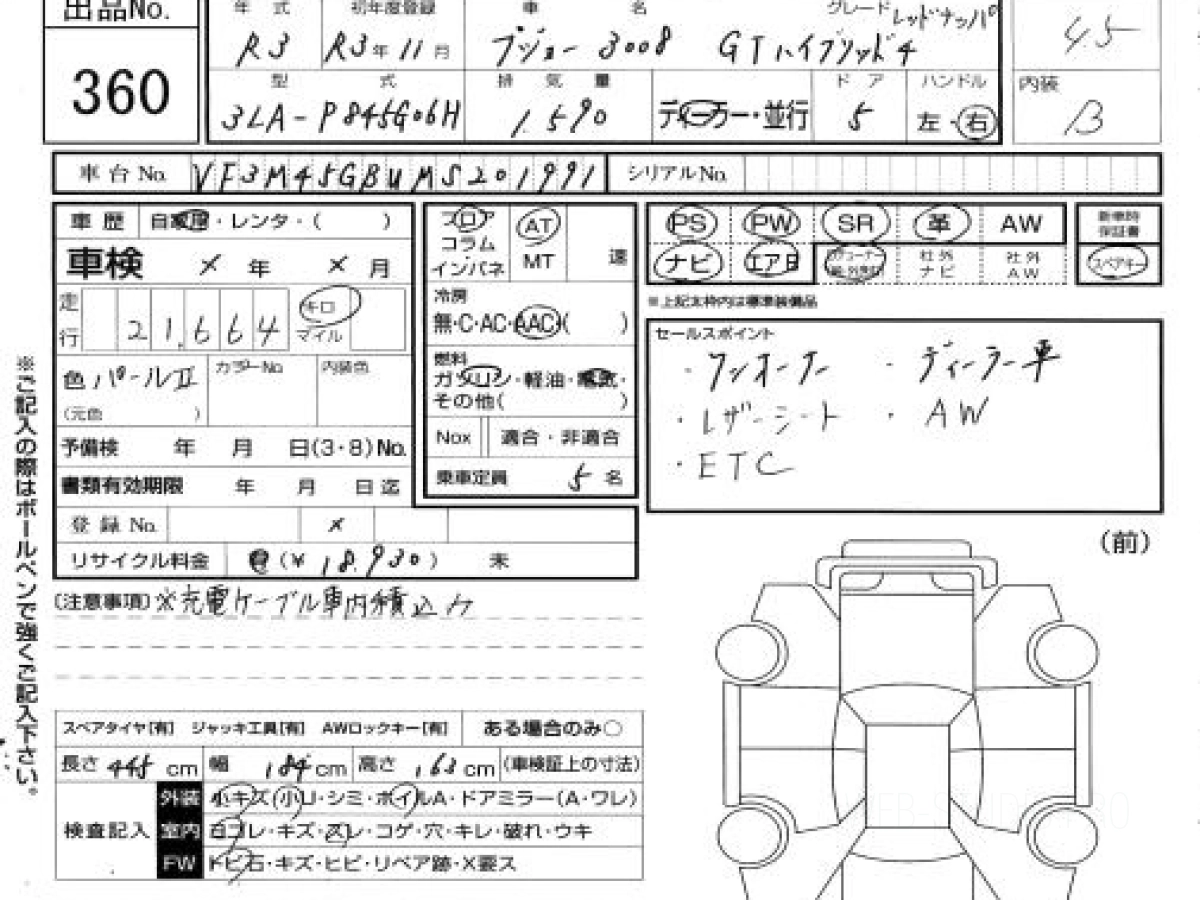 出品No. 360
年式 R3 初年度登録 R3年11月 車名 プジョー 3008 GTハイブリッド4 グレード レッドナッパ 4.5
型式 3LA-P845G06H 排気量 1.590 ディーラー・並行 ドア 5 ハンドル 左・右 内装 B
車台No. VF3M45GBUMS201991 シリアルNo.
車歴 自家用・レンタ・( )
車検 × 年 × 月
走行 21.664 キロ マイル
色 パールⅡ (元色 ) カラーNo 内装色
予備検 年 月 日(3・8)No.
書類有効期限 年 月 日迄
登録No. ×
リサイクル料金 (¥ 18.930) 未
フロア コラム インパネ AT MT 速
冷房
無・C・AC・AAC・( )
燃料
ガソリン・軽油・電気・
その他( )
Nox 適合・非適合
乗車定員 5 名
PS PW SR 革 AW 新車時保証書
ナビ エアB 社外ナビ 社外AW スペアキー
※上記太枠内は標準装備品
セールスポイント
・ワンオーナー ・ディーラー車
・レザーシート ・AW
・ETC
(前)
[注意事項] ※充電ケーブル車内積込み
スペアタイヤ[有] ジャッキ工具[有] AWロックキー[有] ある場合のみ○
長さ 445 cm 幅 184 cm 高さ 163 cm (車検証上の寸法)
検査記入
外装 小キズ・小U・シミ・ホイルA・ドアミラー(A・ワレ)
室内 ヨゴレ・キズ・スレ・コゲ・穴・キレ・破れ・ウキ
FW トビ石・キズ・ヒビ・リペア跡・X要ス
※ご記入の際はボールペンで強くご記入下さい。